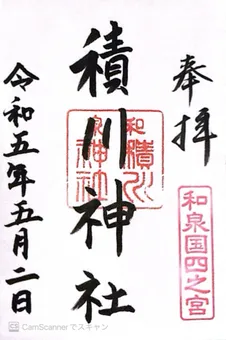 奉拝
和泉国四之宮
積川神社
和泉
積川
神社
令和五年五月二日
CamScanner でスキャン